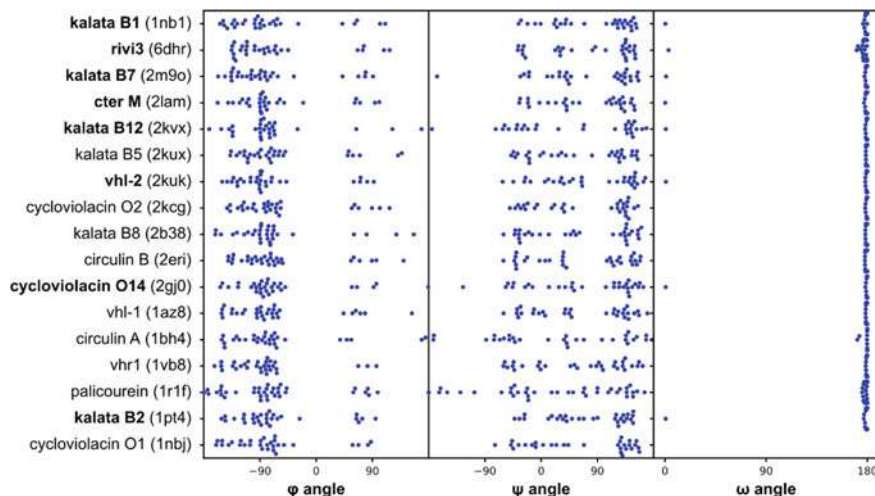 kalata B1 (1nb1)
rivi3 (6dhr)
kalata B7 (2m9o)
cter M (2lam)
kalata B12 (2kvx)
kalata B5 (2kux)
vhl-2 (2kuk)
cycloviolacin O2 (2kcg)
kalata B8 (2b38)
circulin B (2eri)
cycloviolacin O14 (2gj0)
vhl-1 (1az8)
circulin A (1bh4)
vhr1 (1vb8)
palicourein (1r1f)
kalata B2 (1pt4)
cycloviolacin O1 (1nbj)
−90 0 90 −90 0 90 0 90 180
φ angle ψ angle ω angle